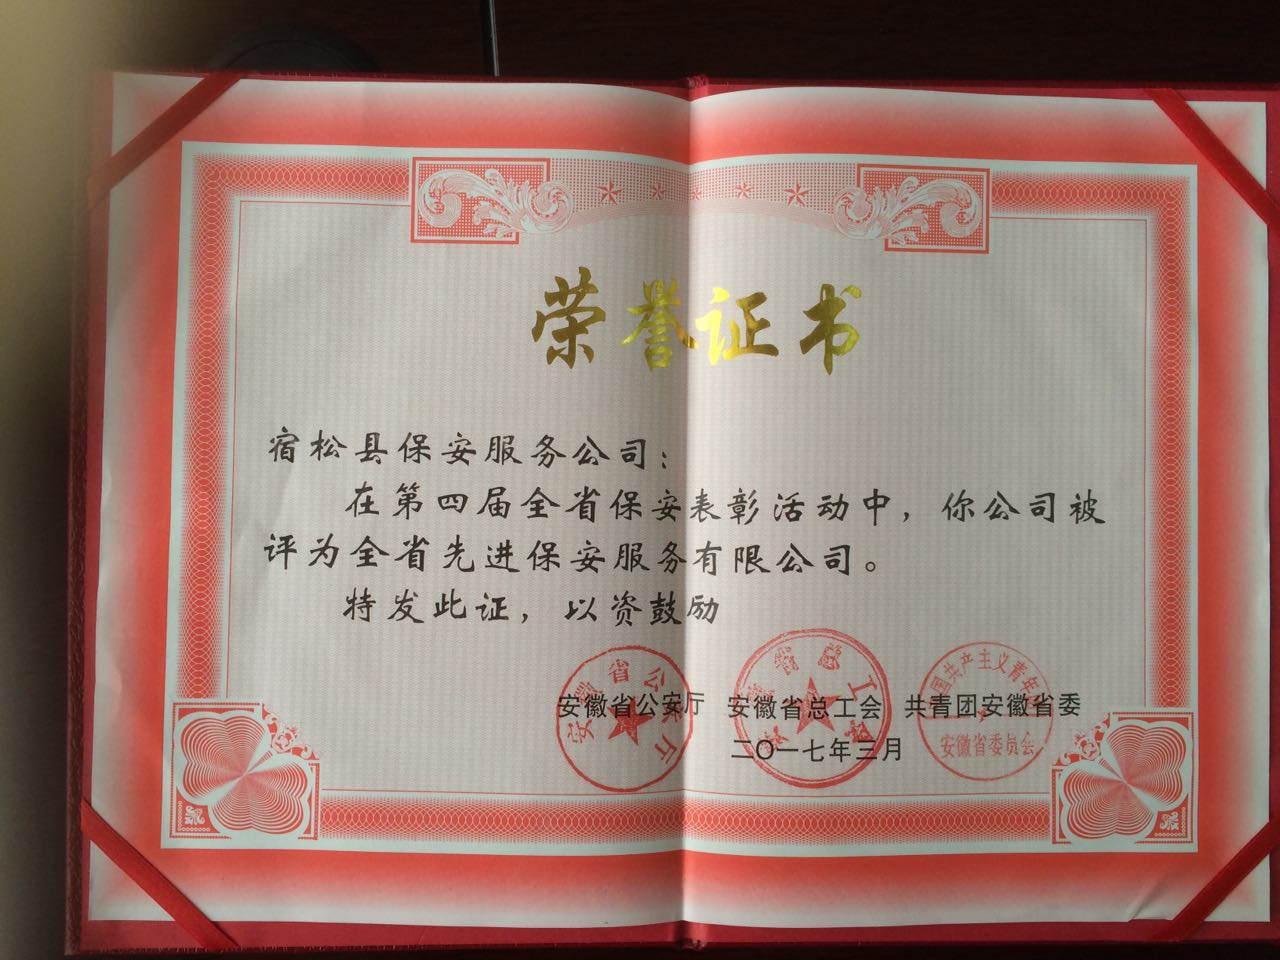 荣誉证书
宿松县保安服务公司：
在第四届全省保安表彰活动中，你公司被
评为全省先进保安服务有限公司。
特发此证，以资鼓励
安徽省公安厅 安徽省总工会 共青团安徽省委
二〇一七年三月
安徽省公安厅
安徽省总工会
国共产主义青年
安徽省委员会